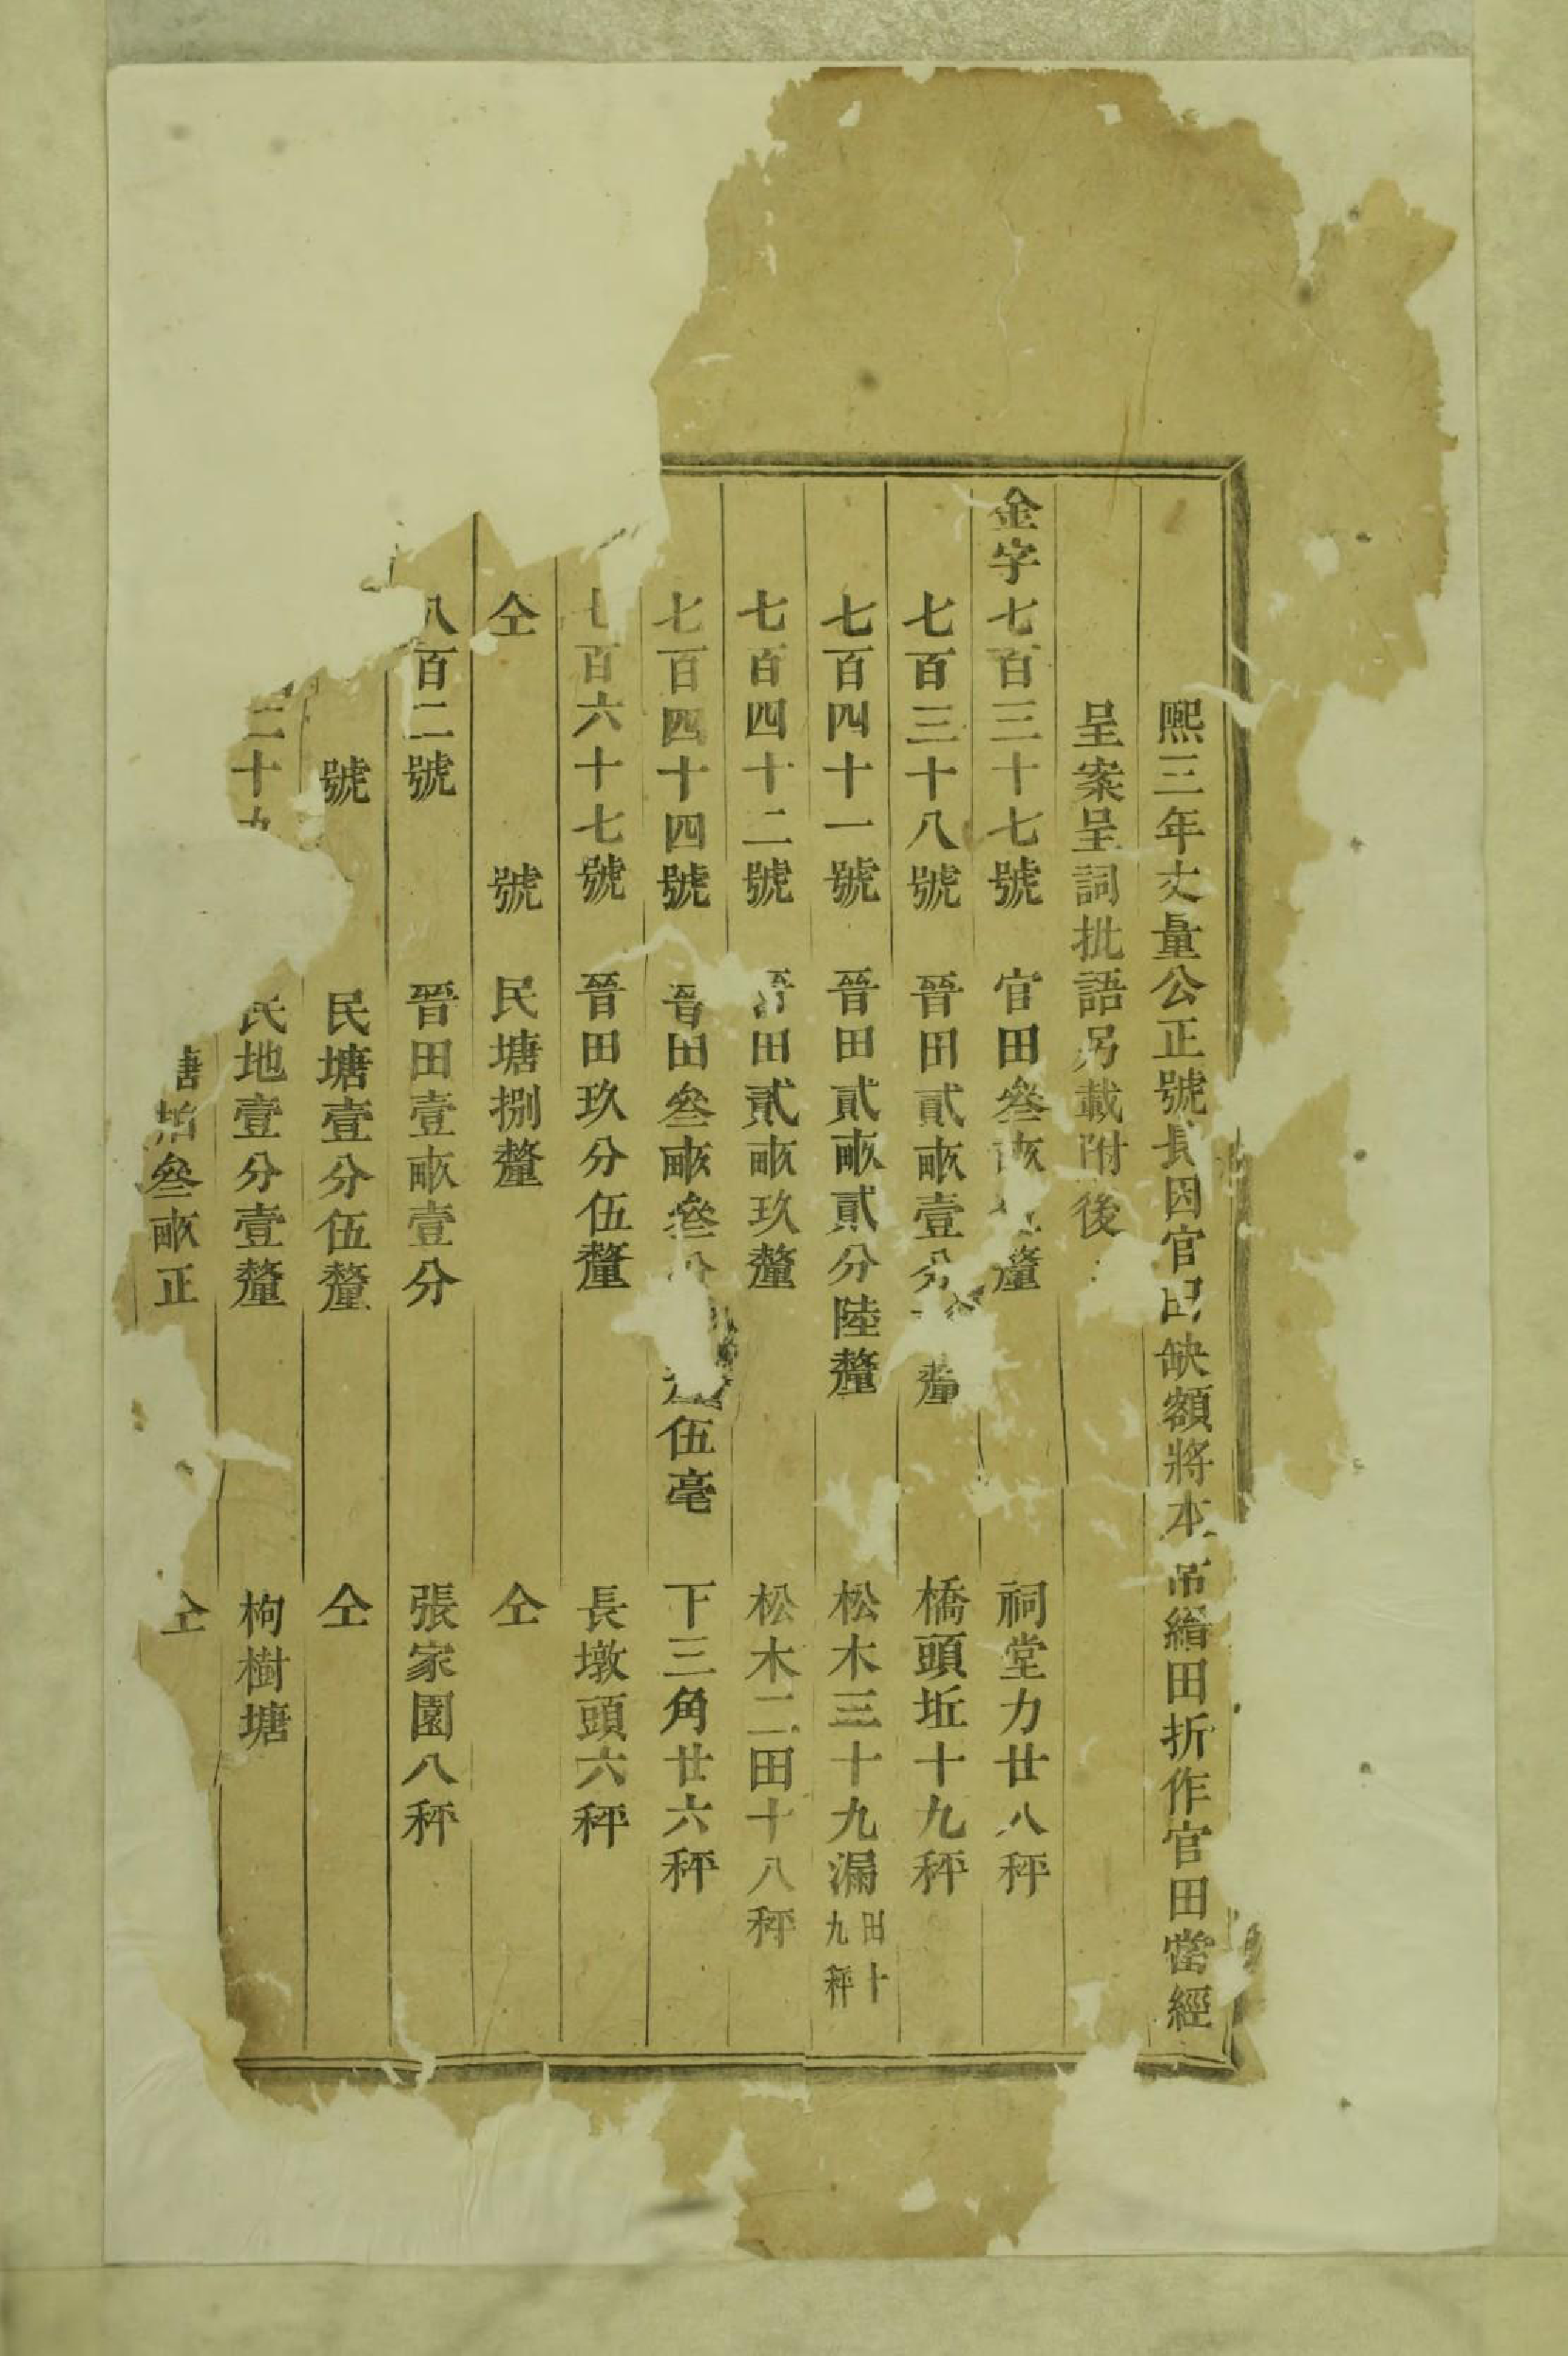 熙三年丈量公正號長因官田缺額將本吊繒田折作官田當經
呈案呈詞批語另載附後
金字七百三十七號 官田叁畝 釐 祠堂力廿八秤
七百三十八號 晉田貳畝壹分 釐 橋頭坵十九秤
七百四十一號 晉田貳畝貳分陸釐 松木三十九漏田十九秤
七百四十二號 晉田貳畝玖釐 松木二田十八秤
七百四十四號 晉田叁畝叁分 伍毫 下三角廿六秤
七百六十七號 晉田玖分伍釐 長墩頭六秤
仝 號 民塘捌釐 仝
八百二號 晉田壹畝壹分 張家園八秤
號 民塘壹分伍釐 仝
二十九 民地壹分壹釐 枸樹塘
塘 叁畝正 仝